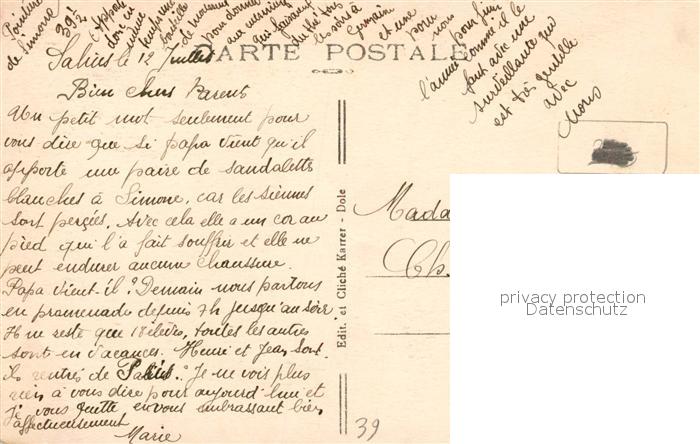 Pointure
de Simone
39 1/2
Apporte
donc en
même
temps une
bouteille
de
pour donner
aux
qui
du thé tous
les soirs à
Germain
et une
pour
nous
l'année comme il le
pour finir
faut avec une
surveillante qui
est très gentille
avec
Nous
CARTE POSTALE
Salins le 12 Juillet
Bien Chers Parents
Un petit mot seulement pour
vous dire que si papa vient qu'il
apporte une paire de sandalettes
blanches à Simone, car les siennes
sont perçées. Avec cela elle a un cor au
pied qui l'a fait souffrir et elle ne
peut endurer aucune chaussure.
Papa vient-il? Demain nous partons
en promenade depuis 7h jusqu'au soir
Il ne reste que 18 élèves, toutes les autres
sont en vacances. Henri et Jean sont
ils rentrés de ? Je ne vois plus
rien à vous dire pour aujourd'hui et
je vous quitte en vous embrassant bien
affectueusement
Marie
Edit. et Cliché Karrer - Dole
Mada
Ch.
39
privacy protection
Datenschutz